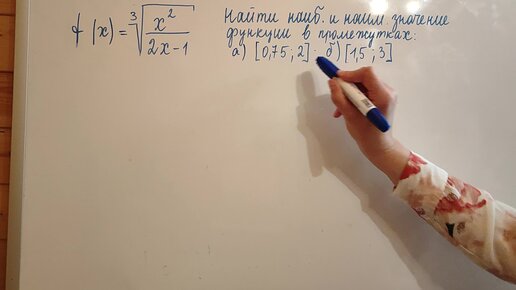 f(x) = ∛(x²/(2x-1))
Найти наиб. и наим. значение
функции в промежутках:
а) [0,75; 2]; б) [1,5; 3]